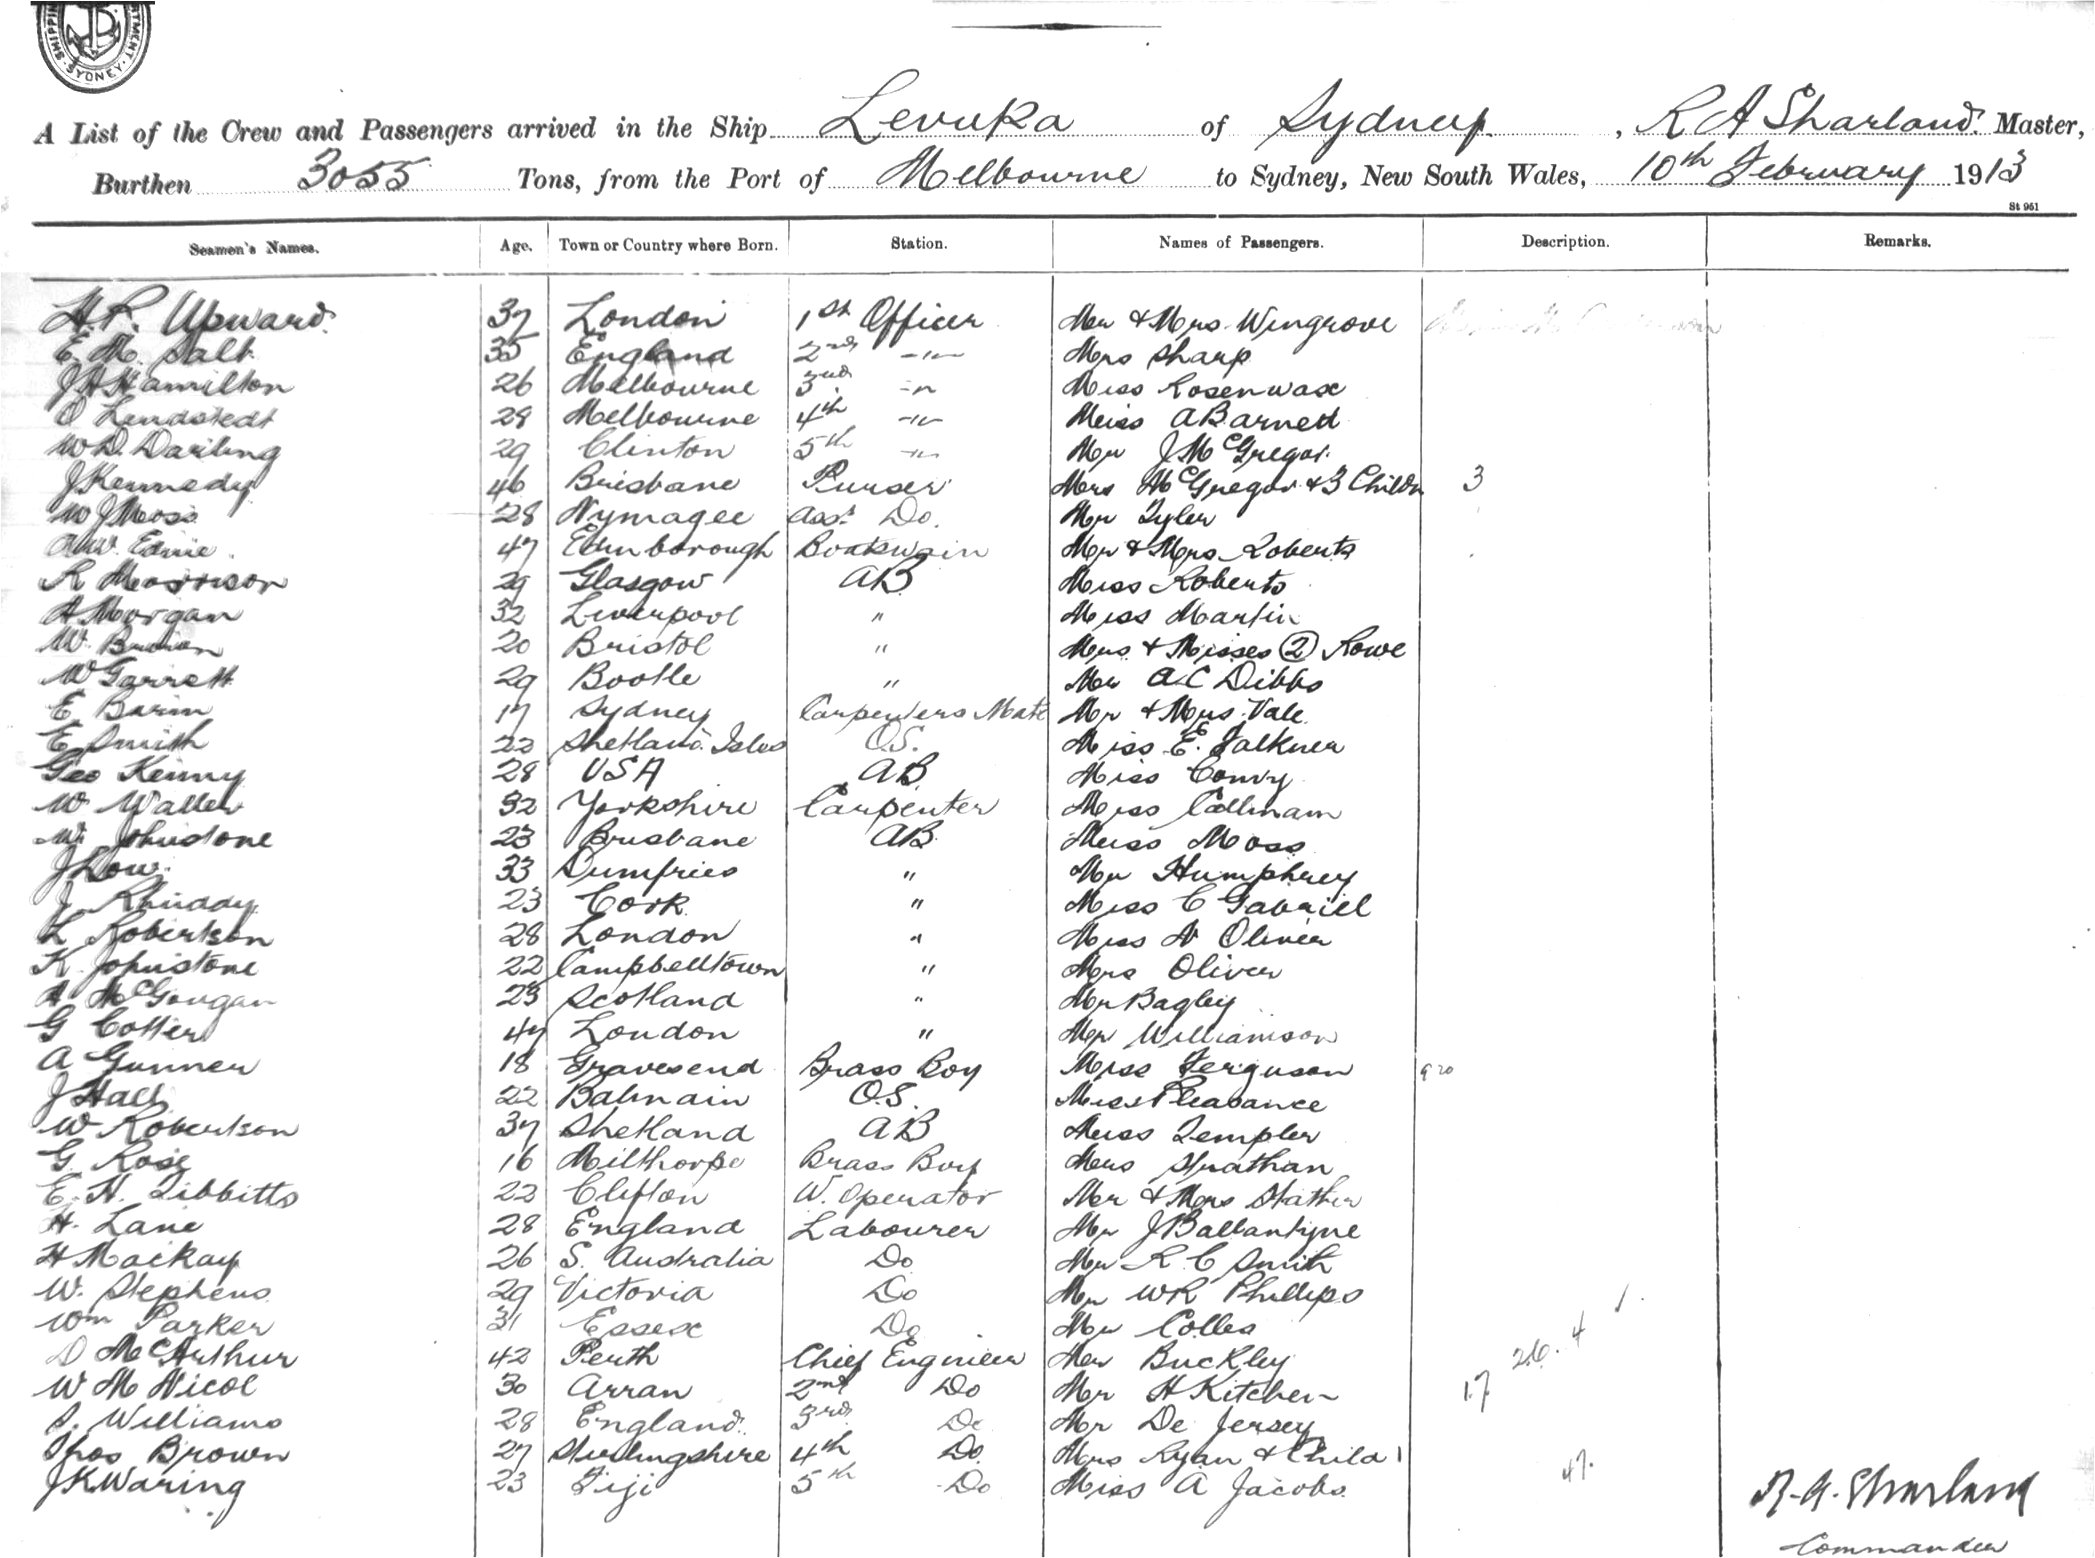 SHIPPING
SYDNEY
A List of the Crew and Passengers arrived in the Ship Levuka of Sydney, R A Sharland Master,
Burthen 3055 Tons, from the Port of Melbourne to Sydney, New South Wales, 10th February 1913
St 961
Seamen's Names. Age. Town or Country where Born. Station. Names of Passengers. Description. Remarks.
H.R. Upward 37 London 1st Officer Mr & Mrs Wingrove
E. M. Salt 35 England 2nd -"- Mrs Sharp
J A Hamilton 26 Melbourne 3rd -"- Miss Rosenwax
O Lindstedt 28 Melbourne 4th -"- Miss A Barnett
W.D. Darling 29 Clinton 5th -"- Mr J McGregor
J Kennedy 46 Brisbane Purser Mrs McGregor & 3 Childn 3
W J Moss 28 Nymagee Asst Do. Mr Tyler
A.W. Ednie 47 Edinborough Boatswain Mr & Mrs Roberts
R Morrison 29 Glasgow AB Miss Roberts
H Morgan 32 Liverpool " Miss Martin
W. 20 Bristol " Mrs & Misses (2) Rowe
W Garrett 29 Bootle " Mr A C Dibbs
E 17 Sydney Carpenters Mate Mr & Mrs Vale
E Smith 22 Shetland Isles O.S. Miss E. Falkner
Geo Kenny 28 USA AB Miss Conry
W Waller 32 Yorkshire Carpenter Miss Callinam
W. Johnstone 23 Brisbane AB Miss Moss
J Low 33 Dumfries " Mr Humphrey
J 23 Cork " Miss C Gabriel
L Robertson 28 London " Miss N Oliver
K Johnstone 22 Campbelltown " Mrs Oliver
A McGougan 23 Scotland " Mr Bagley
G Cotter 47 London " Mr Williamson
A Gunner 18 Gravesend Brass Boy Miss Ferguson
J Hall 22 Balmain O.S. Miss Pleasance
W Robertson 37 Shetland AB Miss Templer
G. Rose 16 Milthorpe Brass Boy Mrs Strathan
E. H. Tibbitts 22 Clifton W. Operator Mr & Mrs Stather
H. Lane 28 England Labourer Mr J Ballantyne
H Mackay 26 S. Australia Do Mr R. C Smith
W. Stephens 29 Victoria Do Mr W R Phillips
Wm Parker 31 Essex Do Mr Colles
D McArthur 42 Perth Chief Engineer Mr Buckley 26. 4 1
W M Nicol 30 Arran 2nd Do Mr H Kitchen 17
S. Williams 28 England 3rd Do Mr De Jersey
Thos Brown 27 Stirlingshire 4th Do Mrs Ryan & Child 1
J K Waring 23 Fiji 5th Do Miss A Jacobs 47.
R. A. Sharland
Commander